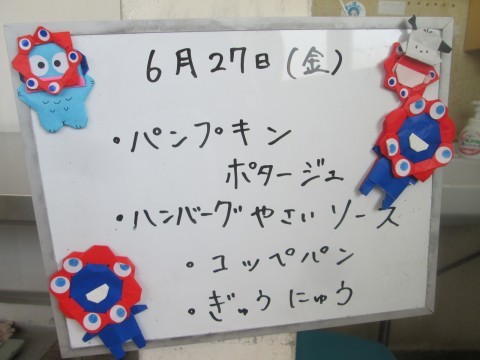 6月27日(金)
・パンプキン
ポタージュ
・ハンバーグやさいソース
・コッペパン
・ぎゅうにゅう